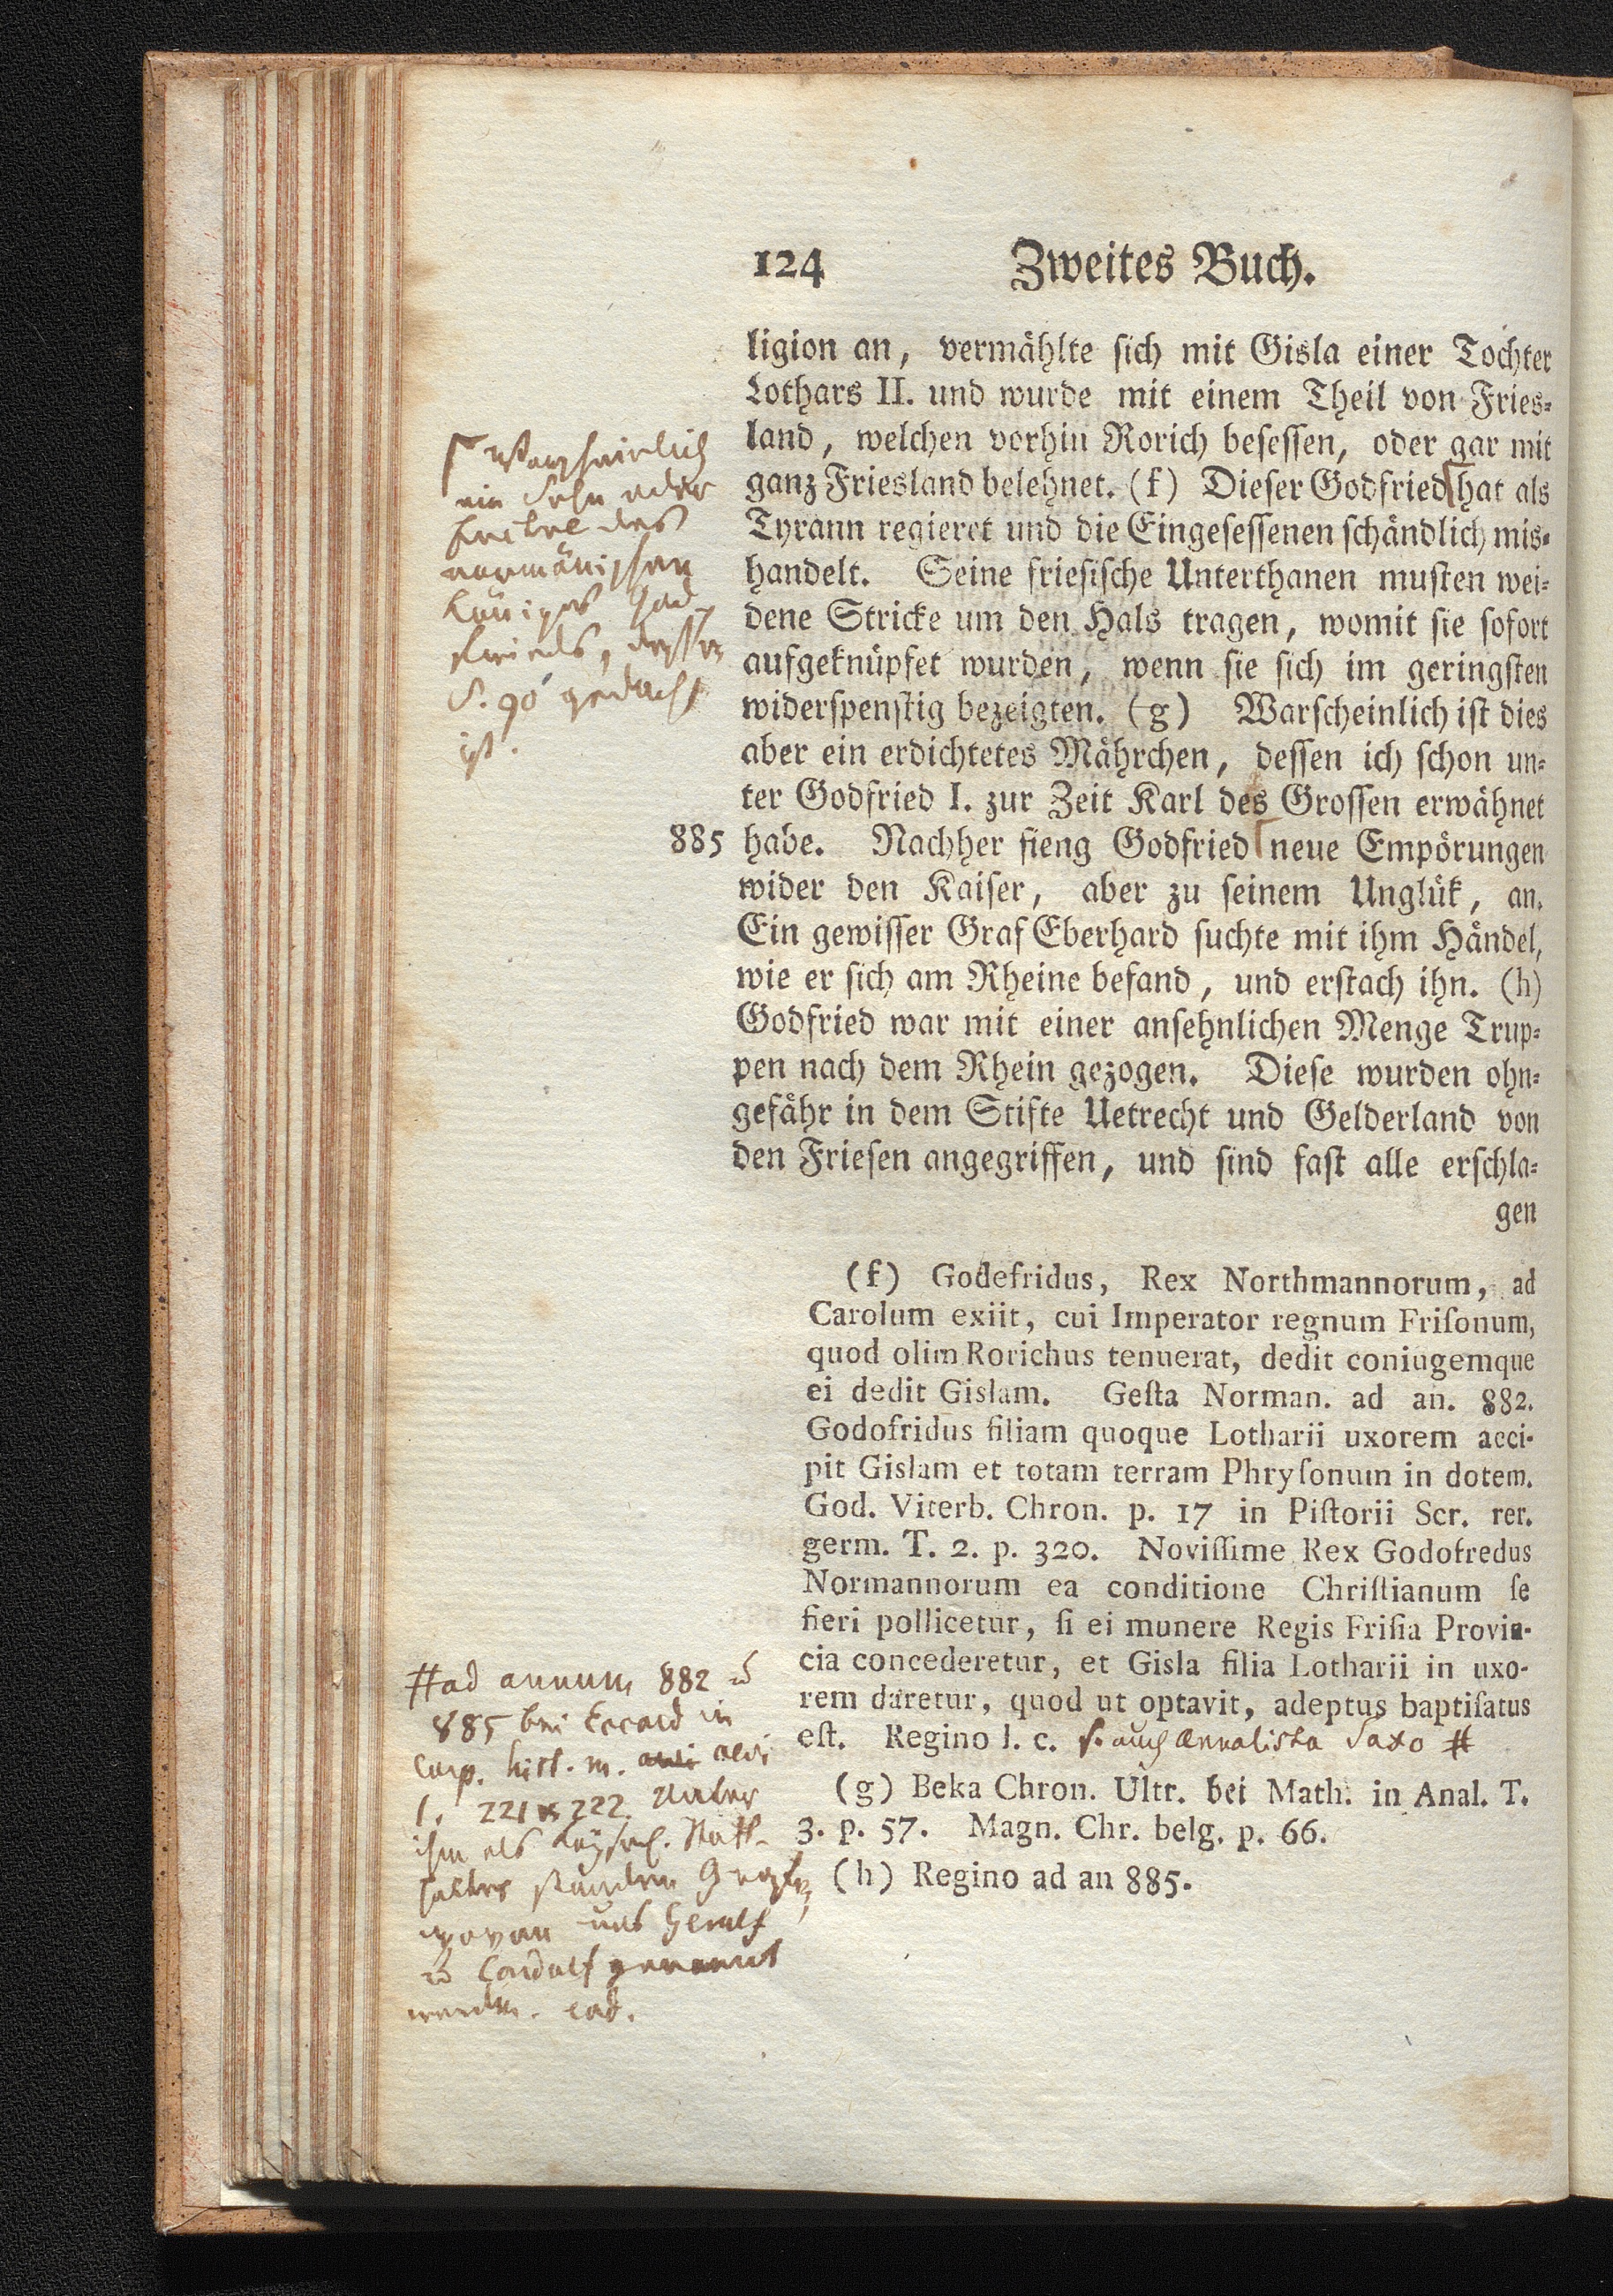 124 Zweites Buch.
ligion an, vermählte sich mit Gisla einer Tochter
Lothars II. und wurde mit einem Theil von Fries-
land, welchen vorhin Rorich besessen, oder gar mit
ganz Friesland belehnet. (f) Dieser Godfried hat als
Tyrann regieret und die Eingesessenen schändlich mis-
handelt. Seine friesische Unterthanen musten wei-
dene Stricke um den Hals tragen, womit sie sofort
aufgeknüpfet wurden, wenn sie sich im geringsten
widerspenstig bezeigten. (g) Warscheinlich ist dies
aber ein erdichtetes Mährchen, dessen ich schon un-
ter Godfried I. zur Zeit Karl des Grossen erwähnet
885 habe. Nachher fieng Godfried neue Empörungen
wider den Kaiser, aber zu seinem Unglük, an.
Ein gewisser Graf Eberhard suchte mit ihm Händel,
wie er sich am Rheine befand, und erstach ihn. (h)
Godfried war mit einer ansehnlichen Menge Trup-
pen nach dem Rhein gezogen. Diese wurden ohn-
gefähr in dem Stifte Uetrecht und Gelderland von
den Friesen angegriffen, und sind fast alle erschla-
gen
warscheinlich
ein Sohn oder
Enckel des
normänischen
Königes God
frieds, dessen
S. 90 gedacht
ist.
(f) Godefridus, Rex Northmannorum, ad
Carolum exiit, cui Imperator regnum Friſonum,
quod olim Rorichus tenuerat, dedit coniugemque
ei dedit Gislam. Geſta Norman. ad an. 882.
Godofridus filiam quoque Lotharii uxorem acci-
pit Gislam et totam terram Phryſonum in dotem.
God. Viterb. Chron. p. 17 in Piſtorii Scr. rer.
germ. T. 2. p. 320. Noviſſime Rex Godofredus
Normannorum ea conditione Chriſtianum ſe
fieri pollicetur, ſi ei munere Regis Friſia Provin-
cia concederetur, et Gisla filia Lotharii in uxo-
rem daretur, quod ut optavit, adeptus baptiſatus
eſt. Regino l. c. s. auch Annalista Saxo #
(g) Beka Chron. Ultr. bei Math. in Anal. T.
3. p. 57. Magn. Chr. belg. p. 66.
(h) Regino ad an 885.
# ad annum 882 u
885 bei Eccard in
Corp. hist. m. aevi
221 222. Unter
ihm als Kayserl. Statt-
halter standen Grafen,
wovon uns Gerulf
u Gardulf genannt
werden. ead.